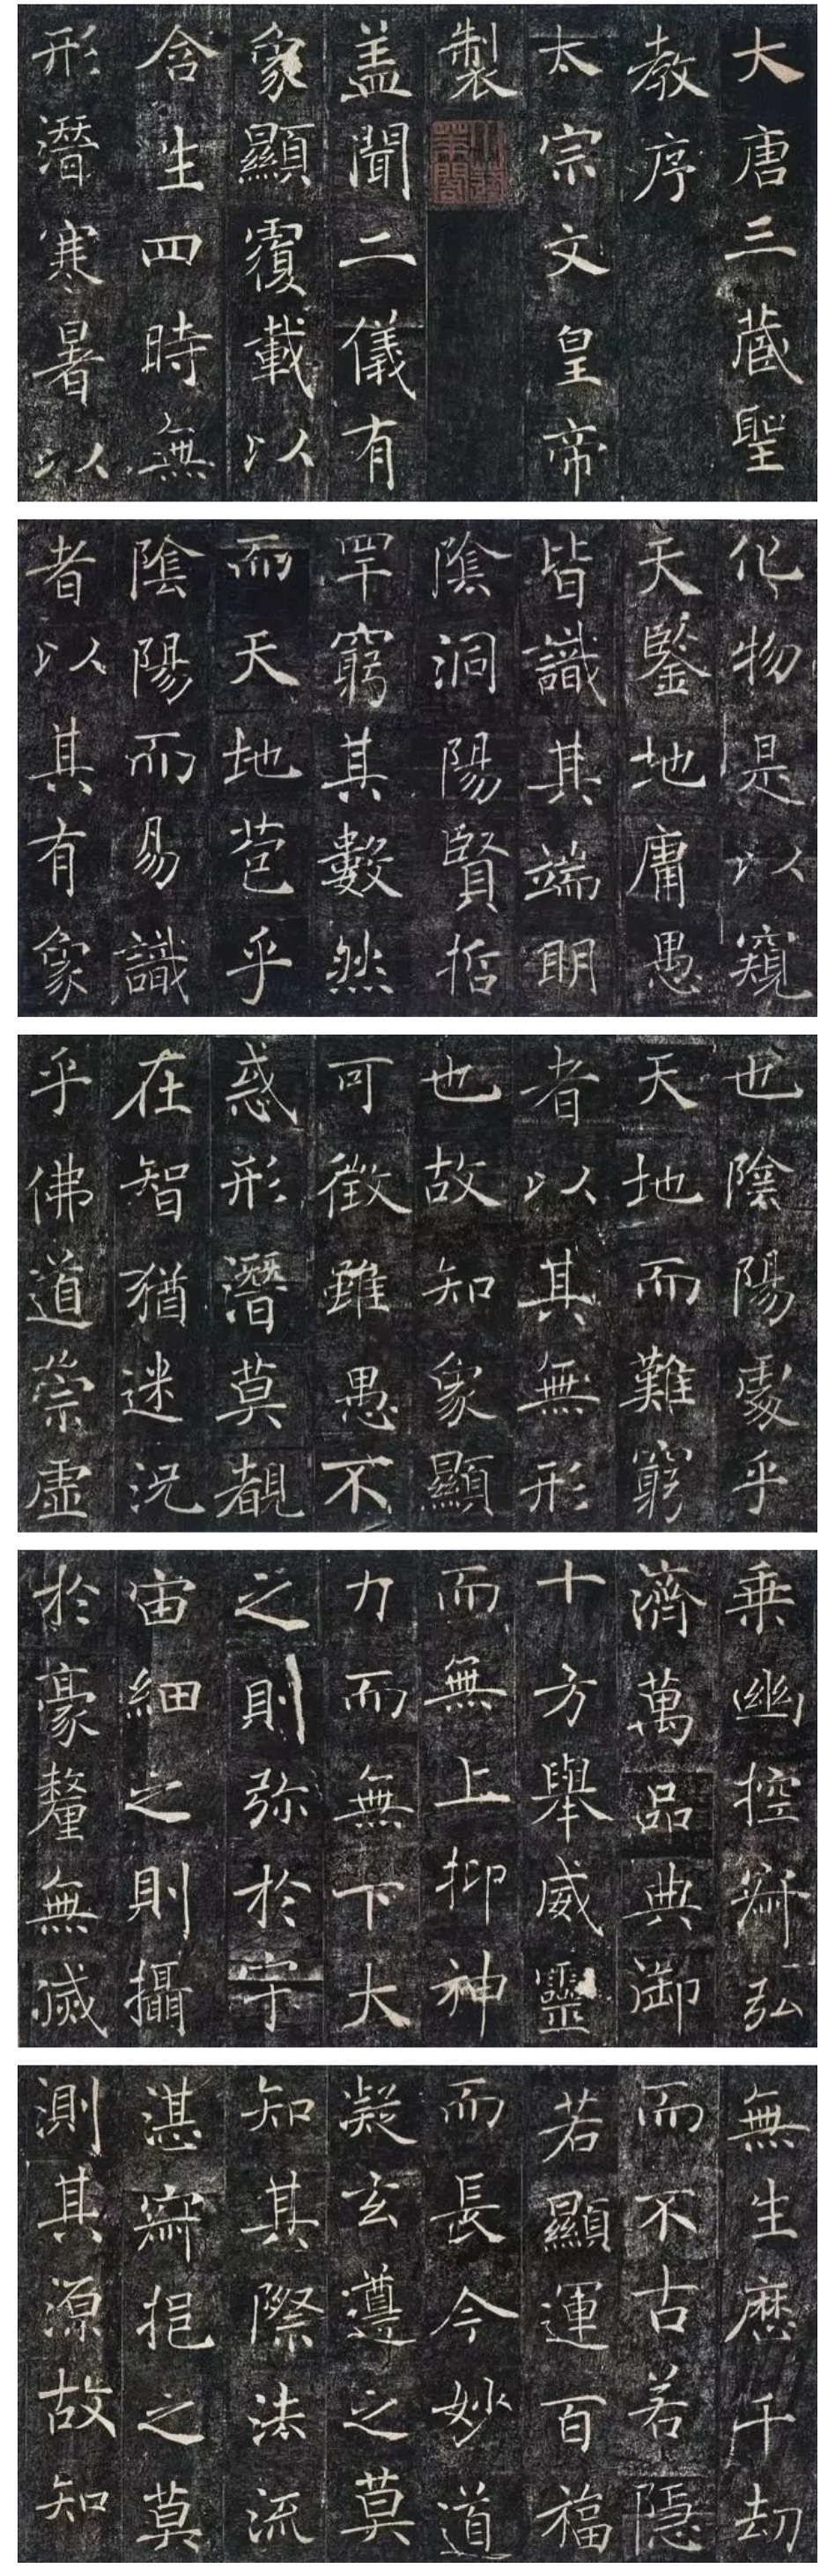 大唐三蔵聖
教序
太宗文皇帝
製
盖聞二儀有
象顯覆載以
含生四時無
形潛寒暑以
化物是以窺
天鑒地庸愚
皆識其端明
陰洞陽賢哲
罕窮其數然
而天地苞乎
陰陽而易識
者以其有象
也陰陽處乎
天地而難窮
者以其無形
也故知象顯
可徵雖愚不
惑形潛莫覩
在智猶迷況
乎佛道崇虛
乗幽控寂弘
濟萬品典御
十方舉威靈
而無上抑神
力而無下大
之則弥於宇
宙細之則攝
於豪釐無滅
無生歷千劫
而不古若隱
若顯運百福
而長今妙道
凝玄遵之莫
知其際法流
湛寂挹之莫
測其源故知